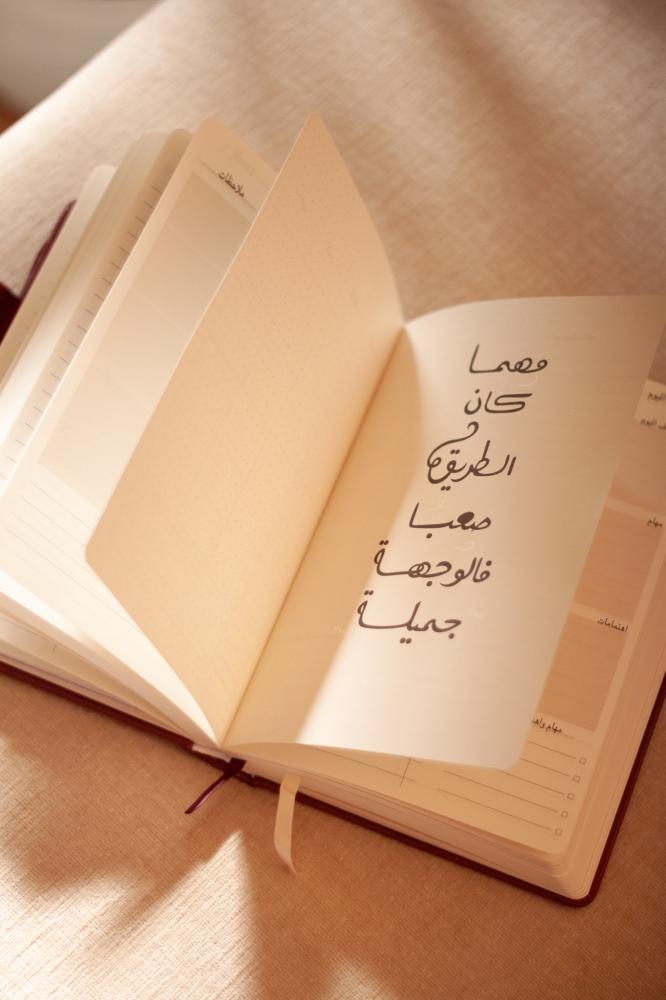 ملاحظات
مهما
كان
الطريق
صعبا
فالوجهة
جميلة
اليوم
اليوم
مهام
اهتمامات
مهام